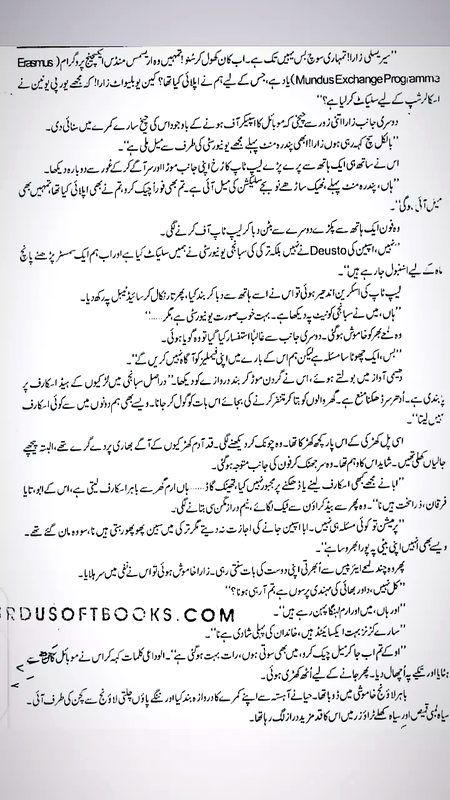 "سیریسلی زارا! تمہاری سوچ بس یہیں تک ہے۔ اب کان کھول کر سنو! تمہیں وہ اریسمس منڈس ایکسچینج پروگرام (Erasmus
Mundus Exchange Programme) یاد ہے، جس کے لیے ہم نے اپلائی کیا تھا؟ کین یو بلیو اٹ زارا! کہ مجھے یورپی یونین نے
اسکالرشپ کے لیے سلیکٹ کرلیا ہے؟"
دوسری جانب زارا اتنی زور سے چیخی کہ موبائل کا اسپیکر آف ہونے کے باوجود اس کی چیخ سارے کمرے میں سنائی دی۔
"بالکل سچ کہہ رہی ہوں زارا! ابھی پندرہ منٹ پہلے مجھے یونیورسٹی کی طرف سے میل ملی ہے"۔
اس نے ساتھ ہی ایک ہاتھ سے پرے پڑے لیپ ٹاپ کا رخ اپنی جانب موڑا اور سر آگے کر کے غور سے دوبارہ دیکھا۔
"ہاں، پندرہ منٹ پہلے، ٹھیک ساڑھے نو بجے سلیکشن کی میل آئی ہے۔ تم بھی فوراً چیک کرو، تم نے بھی اپلائی کیا تھا، تمہیں بھی
میل آئی ہوگی"۔
وہ فون ایک ہاتھ سے پکڑے دوسرے سے بٹن دبا کر لیپ ٹاپ آف کرنے لگی۔
"نہیں، اسپین کی Deusto نے نہیں بلکہ ترکی کی سبانجی یونیورسٹی نے ہمیں سلیکٹ کیا ہے اور اب ہم ایک سمسٹر پڑھنے پانچ
ماہ کے لیے استنبول جا رہے ہیں"۔
لیپ ٹاپ کی اسکرین اندھیر ہوئی تو اس نے اسے ہاتھ سے دبا کر بند کیا، پھر تار نکال کر سائیڈ ٹیبل پہ رکھ دیا۔
"ہاں، میں نے سبانجی کو نیٹ پہ دیکھا ہے۔ بہت خوب صورت یونیورسٹی ہے، مگر......"
وہ لمحے بھر کو خاموش ہوگئی۔ دوسری جانب سے غالباً استفسار کیا گیا تو وہ گویا ہوئی۔
"بس، ایک چھوٹا سا مسئلہ ہے لیکن ہم اس کے بارے میں اپنی فیملیز کو آگاہ نہیں کریں گے"۔
دھیمی آواز میں بولتے ہوئے، اس نے گردن موڑ کر بند دروازے کو دیکھا۔ "دراصل سبانجی میں لڑکیوں کے ہیڈ اسکارف پر
پابندی ہے۔ اُدھر سر ڈھکنا منع ہے۔ گھر والوں کو بتا کر متنفر کرنے کی بجائے اس بات کو گول کر جانا۔ ویسے بھی ہم دونوں میں سے کوئی اسکارف
نہیں لیتا"۔
اسی پل کھڑکی کے اس پار کچھ کھڑکا تھا۔ وہ چونک کر دیکھنے لگی۔ قد آدم کھڑکیوں کے آگے بھاری پردے گرے تھے، البتہ پیچھے
جالیاں کھلی تھیں۔ شاید اس کا وہم تھا۔ وہ سر جھٹک کر فون کی جانب متوجہ ہوگئی۔
"ابا نے مجھے کبھی اسکارف لینے یا ڈھکنے پر مجبور نہیں کیا، تھینک گاڈ...... ہاں ارم گھر سے باہر اسکارف لیتی ہے، اس کے ابو، تایا
فرقان، ذرا سخت ہیں نا"۔ وہ پھر سے بیڈ کراؤن سے ٹیک لگائے، نیم دراز مگن سی بتانے لگی۔
"پرمیشن تو کوئی مسئلہ ہی نہیں۔ ابا اسپین جانے کی اجازت نہ دیتے مگر ترکی میں سبین پھوپھو رہتی ہیں نا، سو وہ مان گئے تھے۔
ویسے بھی انہیں اپنی بیٹی پہ پورا بھروسا ہے"۔
پھر وہ چند لمحے ایئر پیس سے اُبھرتی اپنی دوست کی بات سنتی رہی۔ زارا خاموش ہوئی تو اس نے نفی میں سر ہلایا۔
"کل نہیں، داور بھائی کی مہندی پرسوں ہے، تم آ رہی ہونا؟"
URDUSOFTBOOKS.COM
"اور ہاں، میں اور ارم لہنگا پہن رہے ہیں"۔
"سارے کزنز بہت ایکسائیٹڈ ہیں، خاندان کی پہلی شادی ہے نا"۔
"اوکے تم اب جا کر میل چیک کرو، میں بھی سوتی ہوں، رات بہت ہوگئی ہے"۔ الوداعی کلمات کہہ کر اس نے موبائل کان سے
ہٹایا اور تکیے پہ اُچھال دیا۔ پھر جانے کے لیے اُٹھ کھڑی ہوئی۔
باہر لاؤنج خاموشی میں ڈوبا تھا۔ حیا نے آہستہ سے اپنے کمرے کا دروازہ بند کیا اور ننگے پاؤں چلتی لاؤنج سے کچن کی طرف آئی۔
سیاہ لمبی قمیص اور سیاہ کھلے ٹراؤزر میں اس کا قد مزید دراز لگ رہا تھا۔